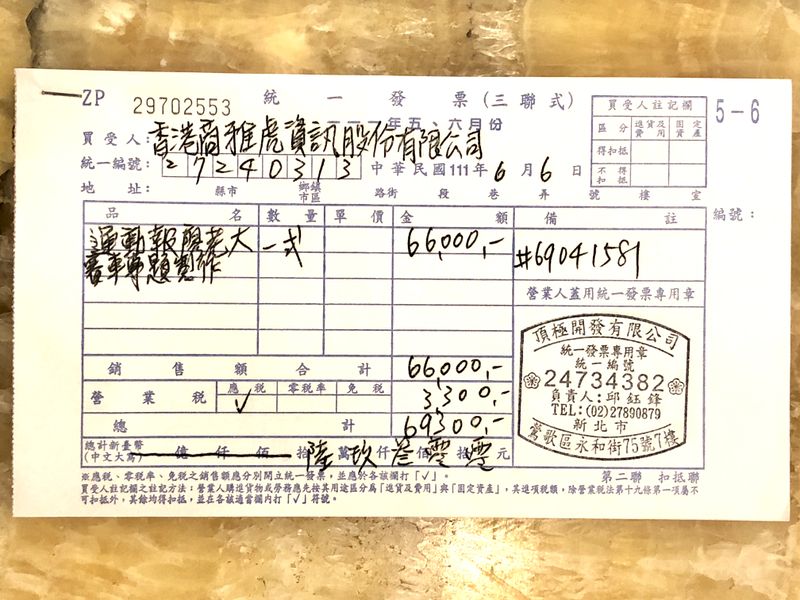 ZP 29702553 統一發票(三聯式)
一一一年五、六月份
5-6
買受人註記欄
區分 進貨及費用 固定資產
得扣抵
不得扣抵
買受人:香港商雅虎資訊股份有限公司
統一編號:27240313 中華民國111年6月6日
地址: 縣市 鄉鎮市區 路街 段 巷 弄 號 樓 室
編號:
品名 數量 單價 金額 備註
運動報 老大 一式 66,000,-
賽車專題製作
#69041581
營業人蓋用統一發票專用章
銷售額合計 66,000,-
營業稅 應稅 零稅率 免稅 3,300,-
✓
總計 69300,-
總計新臺幣
(中文大寫) 億仟佰拾陸萬玖仟叁佰零拾零元
頂極開發有限公司
統一發票專用章
統一編號
24734382
負責人:邱鈺鋒
TEL:(02)27890879
新北市
鶯歌區永和街75號7樓
第二聯 扣抵聯
※應稅、零稅率、免稅之銷售額應分別開立統一發票,並應於各該欄打「✓」。
買受人註記欄之註記方法:營業人購進貨物或勞務應先按其用途區分為「進貨及費用」與「固定資產」,其進項稅額,除營業稅法第十九條第一項屬不
可扣抵外,其餘均得扣抵,並在各該適當欄內打「✓」符號。